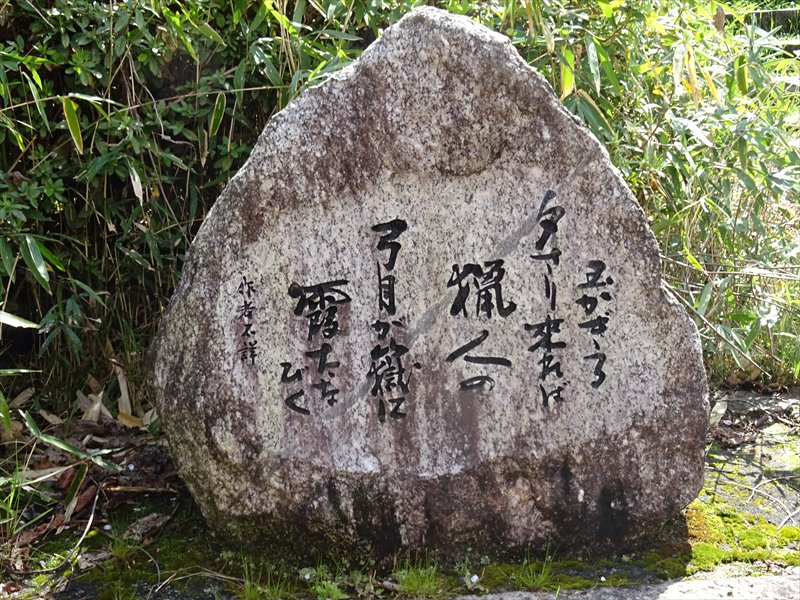 玉かぎる
夕さり来れば
猟人の
弓月が嶽に
霞たな
びく
作者不詳